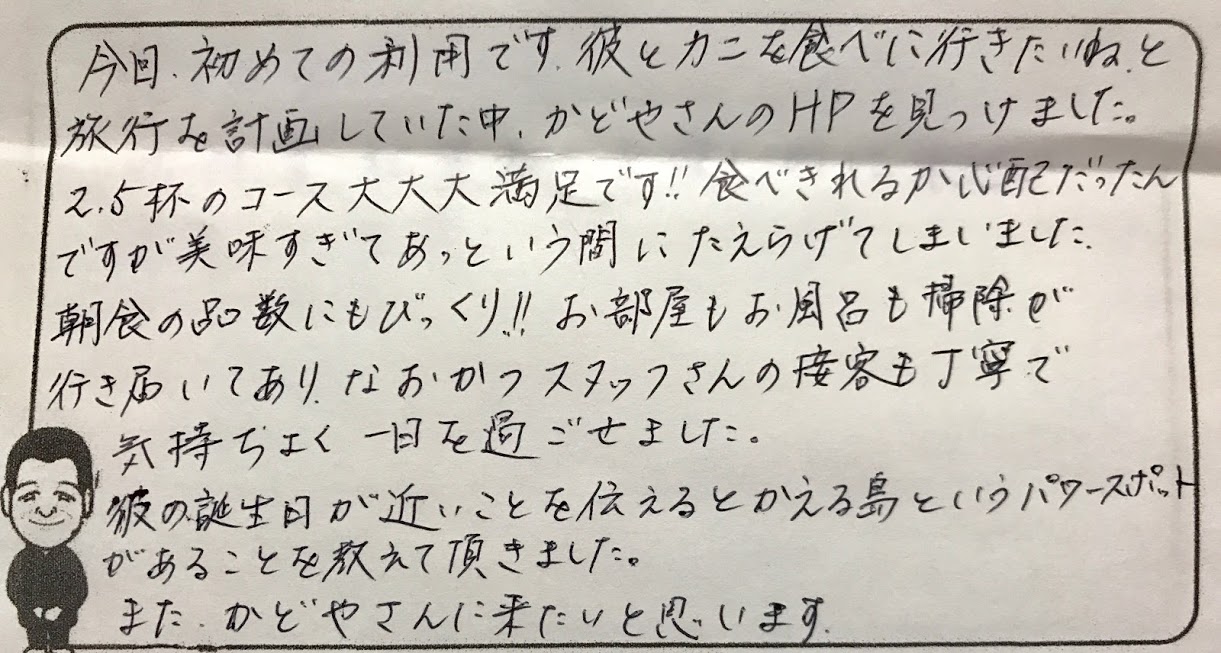 今回、初めての利用です。彼とカニを食べに行きたいね、と
旅行を計画していた中、かどやさんのHPを見つけました。
2.5杯のコース大大大満足です!!食べきれるか心配だったん
ですが美味すぎてあっという間にたえらげてしまいました。
朝食の品数にもびっくり!!お部屋もお風呂も掃除が
行き届いてあり、なおかつスタッフさんの接客も丁寧で
気持ちよく一日を過ごせました。
彼の誕生日が近いことを伝えるとかえる島というパワースポット
があることを教えて頂きました。
また、かどやさんに来たいと思います。